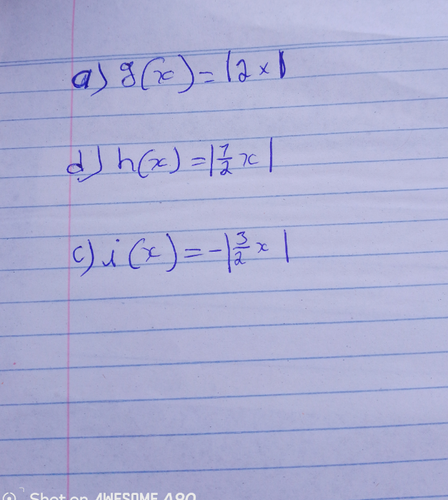 a) g(x) = |2x|
d) h(x) = |7/2 x|
c) i(x) = -|3/2 x|
Shot on AWESOME A90